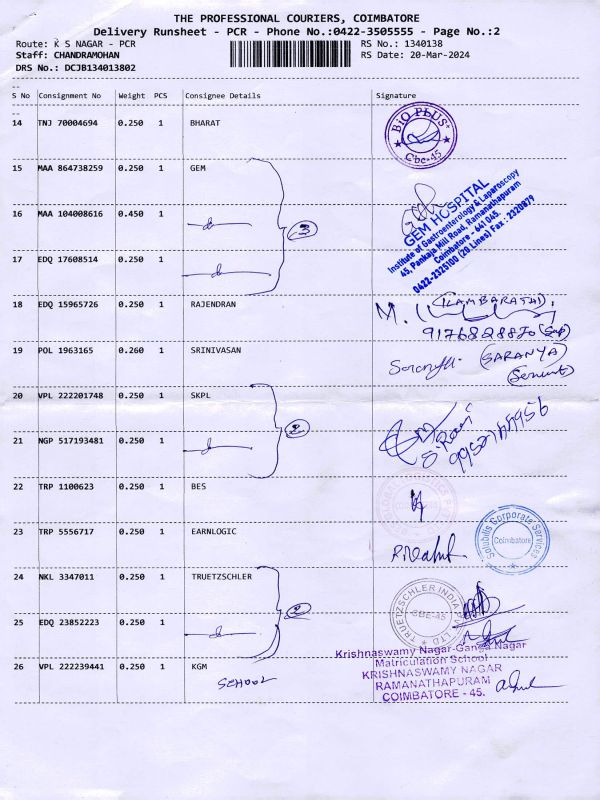 THE PROFESSIONAL COURIERS, COIMBATORE
Delivery Runsheet - PCR - Phone No.:0422-3505555 - Page No.:2
Route: K S NAGAR - PCR RS No.: 1340138
Staff: CHANDRAMOHAN RS Date: 20-Mar-2024
DRS No.: DCJB134013802
S No Consignment No Weight PCS Consignee Details Signature
14 TNJ 70004694 0.250 1 BHARAT
BiO PLUS
Cbe-45
15 MAA 864738259 0.250 1 GEM
16 MAA 104008616 0.450 1
3
17 EDQ 17608514 0.250 1
GEM HOSPITAL
Institute of Gastroenterology & Laparoscopy
45, Pankaja Mill Road, Ramanathapuram
Coimbatore - 641 045.
0422-2325100 (20 Lines) Fax : 2320879
18 EDQ 15965726 0.250 1 RAJENDRAN
M. (ILAMBARATHI),
9176828820
19 POL 1963165 0.260 1 SRINIVASAN
(SARANYA)
(Servant)
20 VPL 222201748 0.250 1 SKPL
21 NGP 517193481 0.250 1
2
22 TRP 1100623 0.250 1 BES
23 TRP 5556717 0.250 1 EARNLOGIC
Solubilis Corporate Services
Coimbatore
24 NKL 3347011 0.250 1 TRUETZSCHLER
25 EDQ 23852223 0.250 1
2
TRUETZSCHLER INDIA PVT. LTD
CBE-45
26 VPL 222239441 0.250 1 KGM
Krishnaswamy Nagar-Ganga Nagar
Matriculation School
KRISHNASWAMY NAGAR
RAMANATHAPURAM
COIMBATORE - 45.